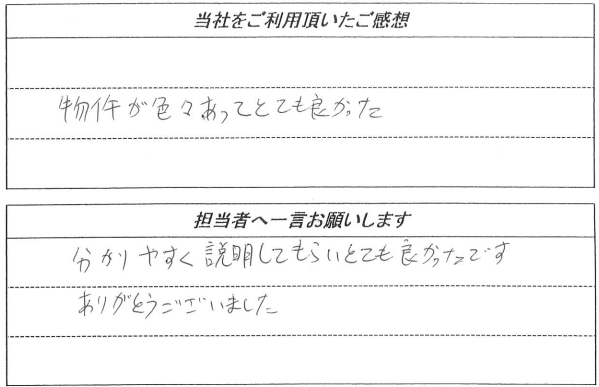 当社をご利用頂いたご感想
物件が色々あってとても良かった
担当者へ一言お願いします
分かりやすく説明してもらいとても良かったです
ありがとうございました